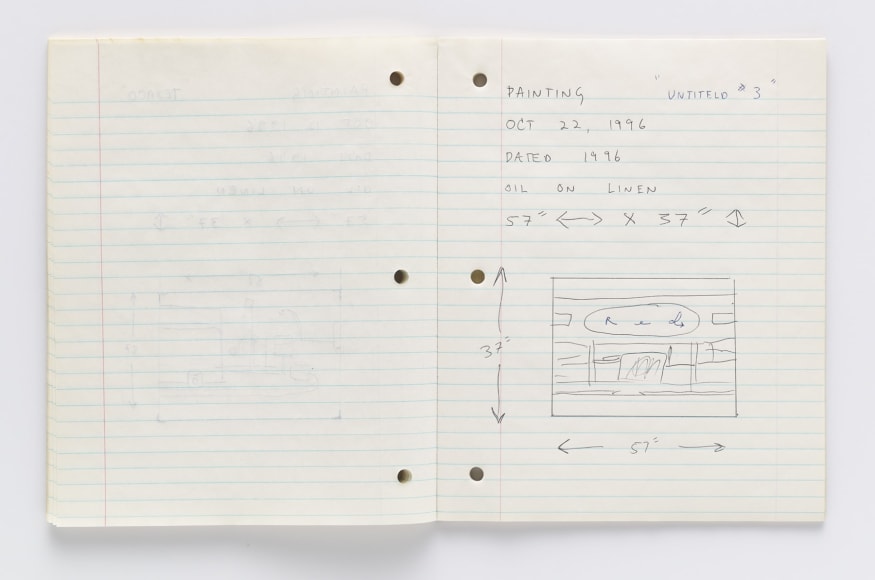 PAINTING "UNTITELD #3"
OCT 22, 1996
DATED 1996
OIL ON LINEN
57" ⟷ X 37" ↕
37"
Red
57"